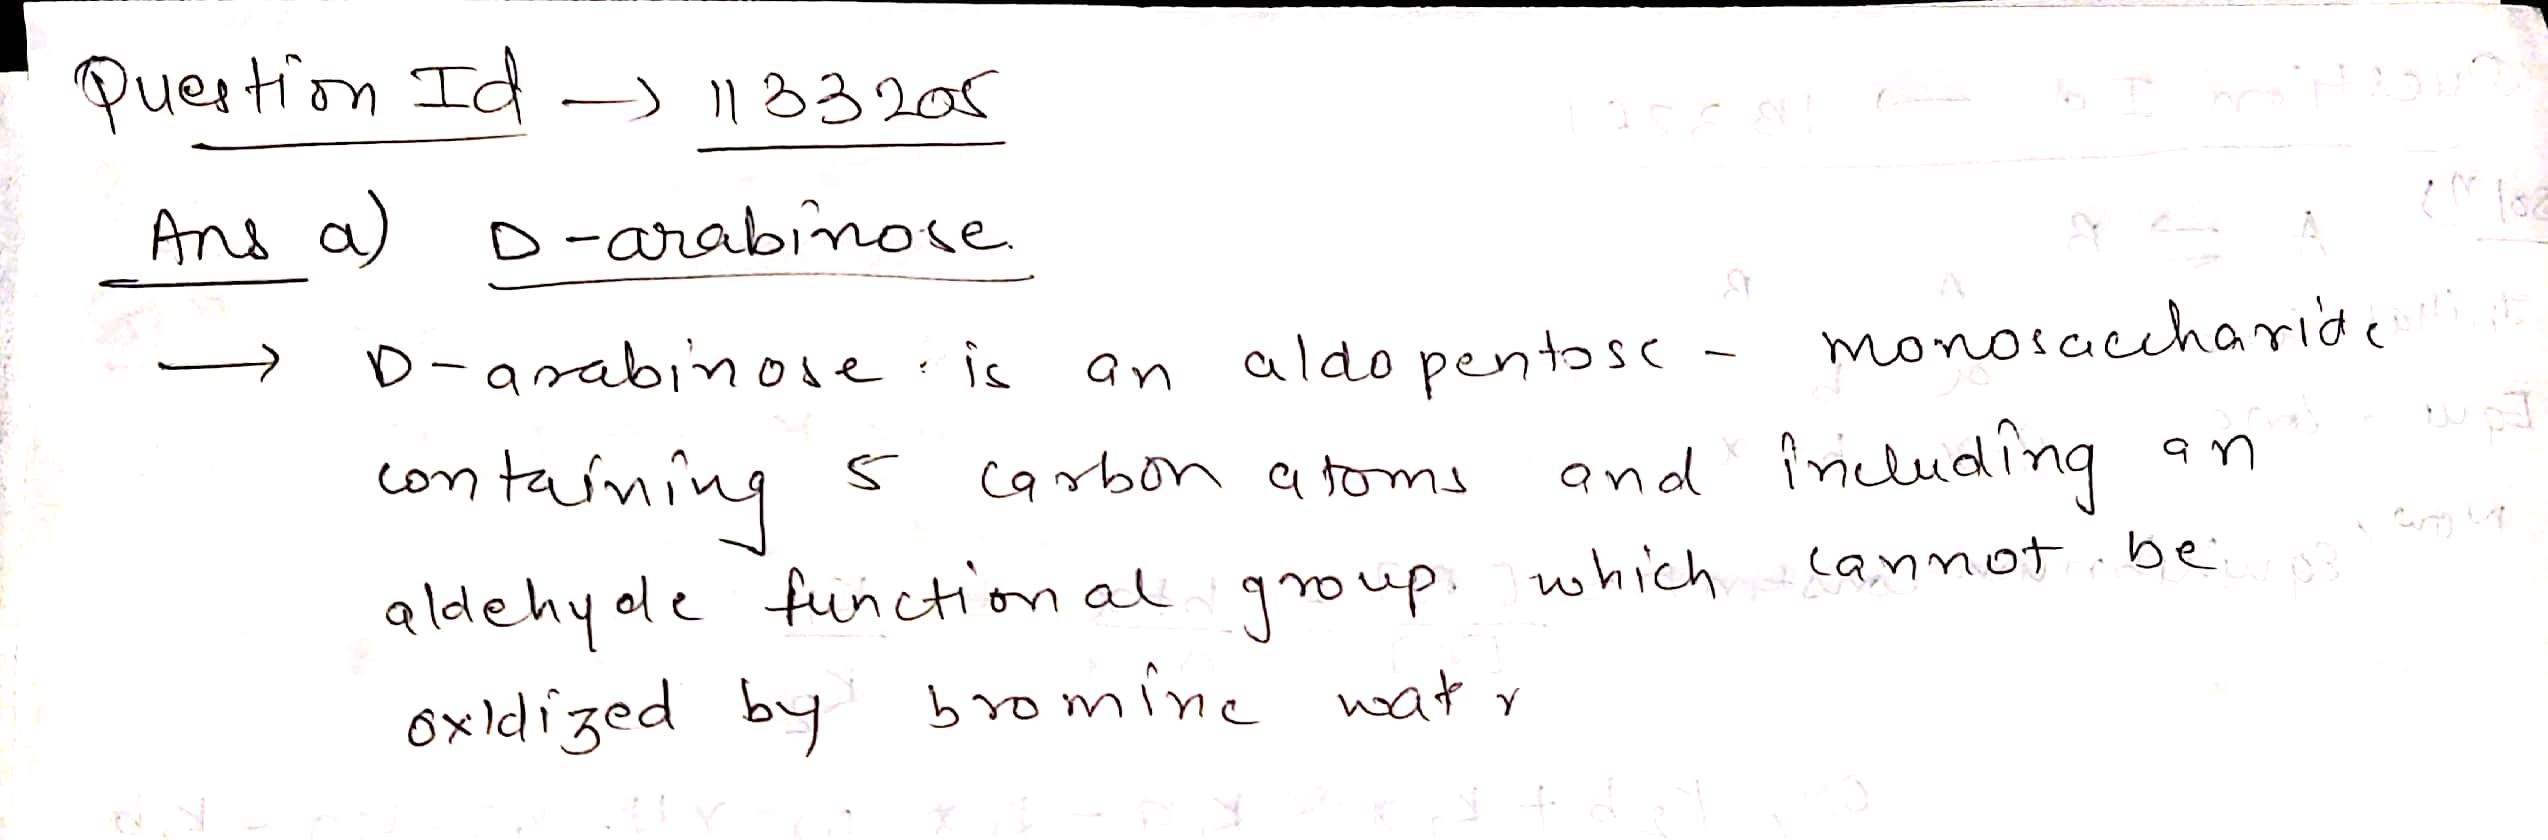 Question Id → 1133205
Ans a) D-arabinose.
→ D-arabinose is an aldopentose - monosaccharide
containing 5 carbon atoms and including an
aldehyde functional group. which cannot be
oxidized by bromine watr